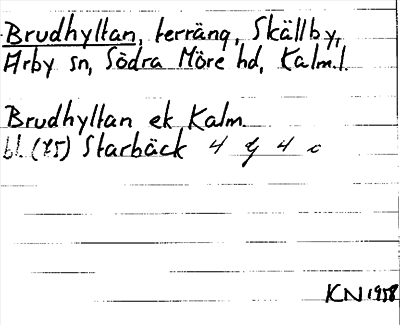 Brudhyltan, terräng, Skällby,
Arby sn, Södra Möre hd, Kalm.l.
Brudhyltan ek Kalm
bl. (75) Starbäck 4 G 4 c
KN 1958